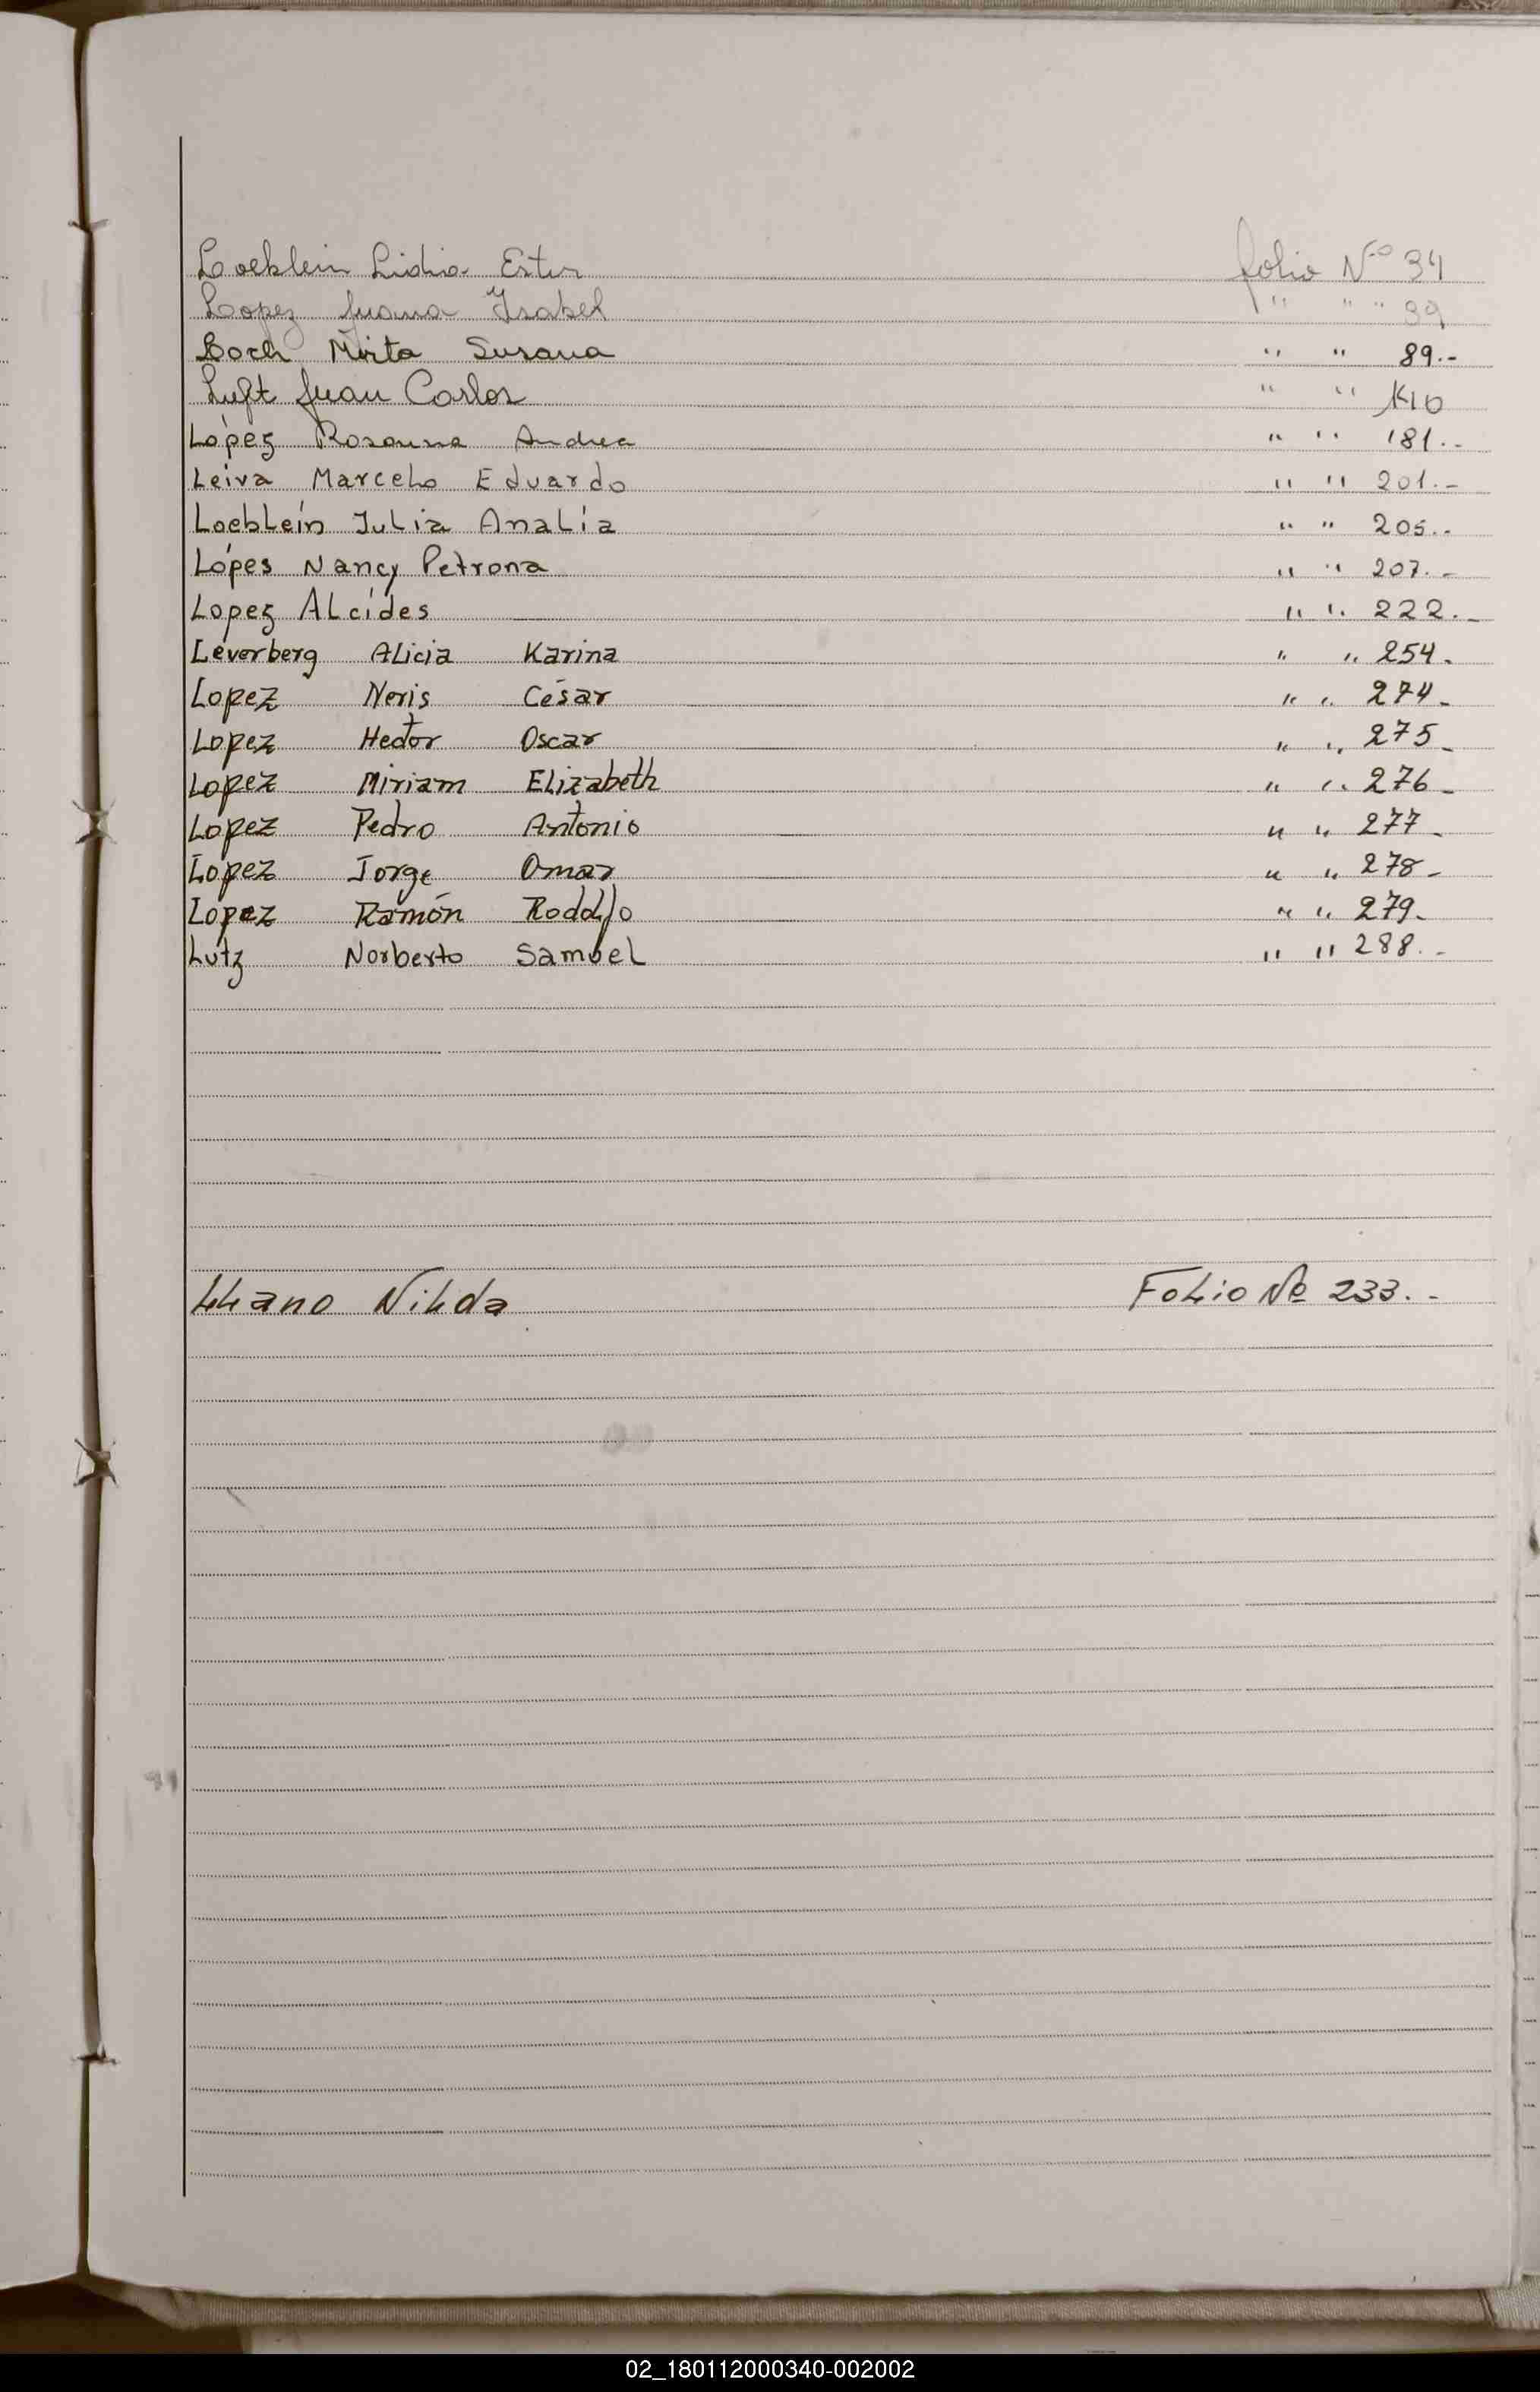 Loeblein Lidia Ester folio Nº 34
Lopez Juana Isabel " " " 39
Loch Mirta Susana " " 89.-
Luft Juan Carlos " "
López Rosanna Andrea " " 181.-
Leiva Marcelo Eduardo " " 201.-
Loeblein Julia Analía " " 205.-
Lópes Nancy Petrona " " 207.-
Lopez Alcídes " " 222.-
Leverberg Alicia Karina " " 254.
Lopez Neris César " " 274-
Lopez Hector Oscar " " 275-
Lopez Miriam Elizabeth " " 276-
Lopez Pedro Antonio " " 277-
Lopez Jorge Omar " " 278-
Lopez Ramón " " 279-
Lutz Norberto Samuel " " 288.-
Llano Nilda Folio Nº 233.-
02_180112000340-002002